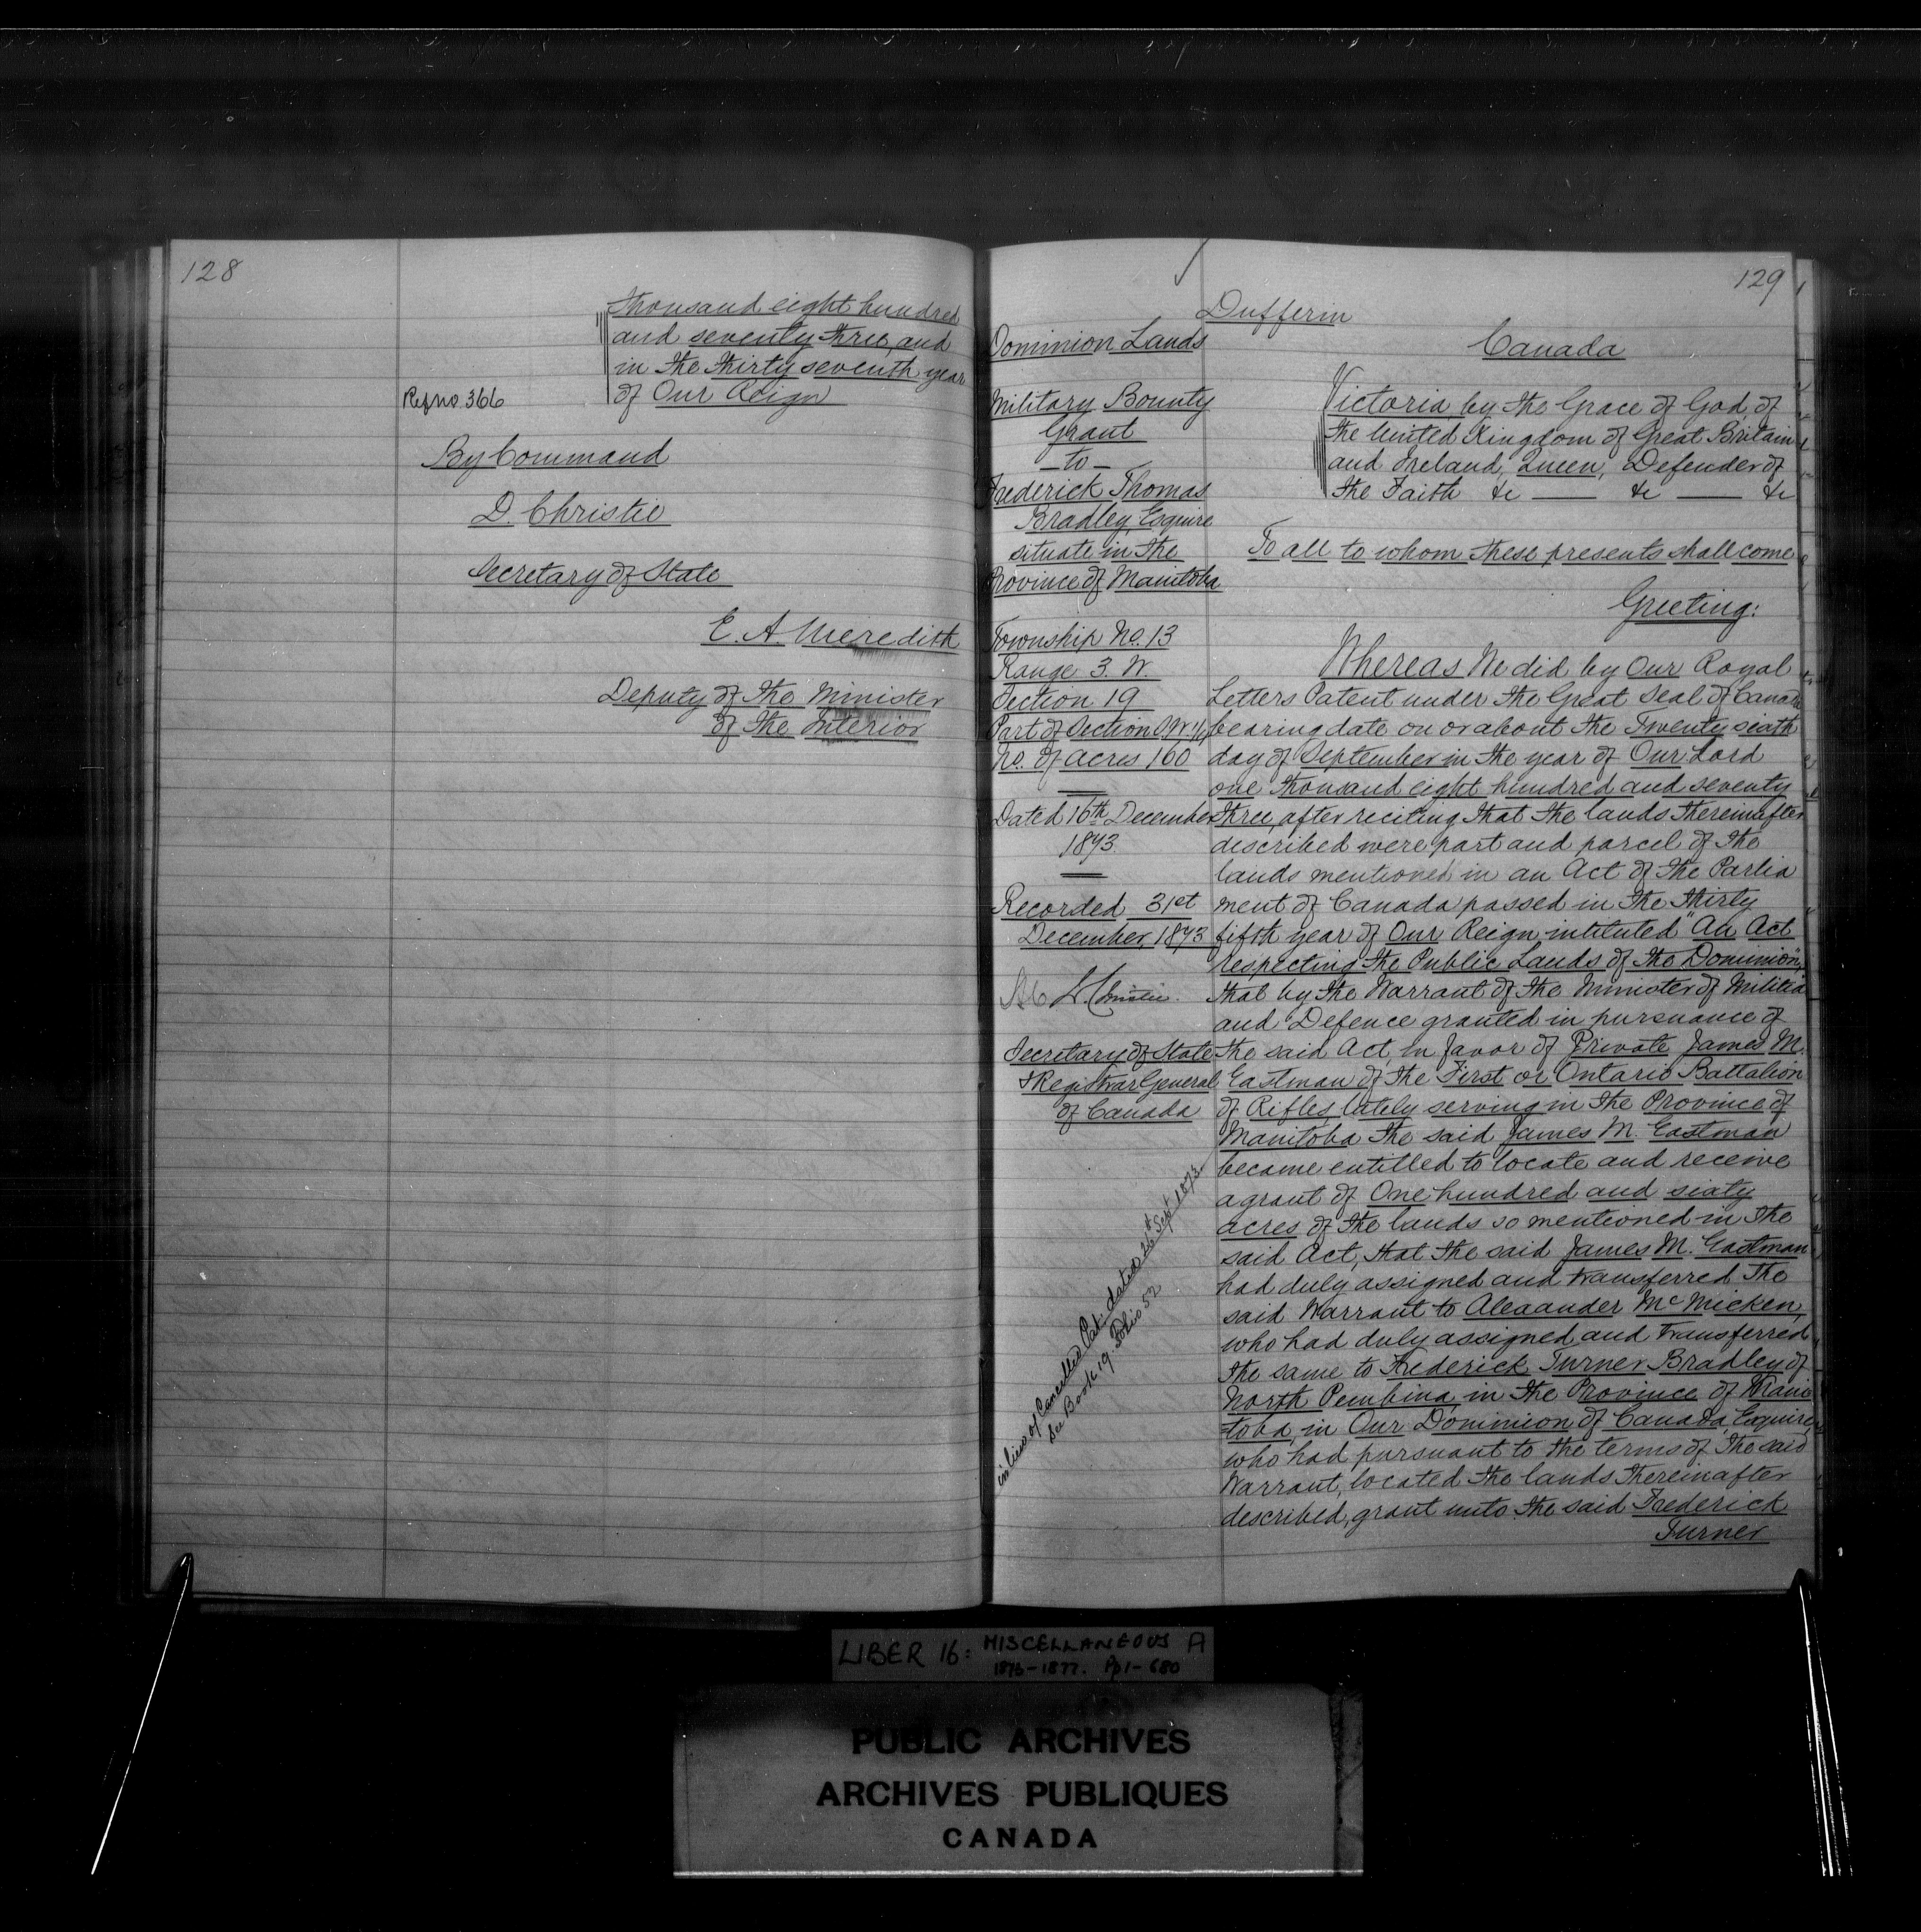 128
thousand eight hundred
and seventy three, and
in the thirty seventh year
of Our Reign
Ref no. 366
By Command
D. Christie
Secretary of State
E. A. Meredith
Deputy of the Minister
of the Interior
129
Dufferin
Dominion Lands
Military Bounty
Grant
- to -
Frederick Thomas
Bradley, Esquire
situate in the
Province of Manitoba
Township No. 13
Range 3. W.
Section 19
Part of Section N.W. 1/4
No. of acres 160
Dated 16th December
1873
Recorded 31st
December, 1873
Christie
Secretary of State
& Registrar General
of Canada
in lieu of Cancelled Pat. dated 26th Sept 1873.
See Book 19. Folio 52
Canada
Victoria, by the Grace of God, of
the United Kingdom of Great Britain
and Ireland, Queen, Defender of
the Faith &c — &c — &c
To all to whom these presents shall come
Greeting:
Whereas We did by Our Royal
Letters Patent under the Great Seal of Canada
bearing date on or about the Twenty sixth
day of September in the year of Our Lord
one thousand eight hundred and seventy
three, after reciting that the lands thereinafter
described were part and parcel of the
lands mentioned in an Act of the Parlia
ment of Canada passed in the thirty
fifth year of Our Reign intituted "An Act
respecting the Public Lands of the Dominion,"
that by the Warrant of the Minister of Militia
and Defence granted in pursuance of
the said Act, in favor of Private James M.
Eastman of the First or Ontario Battalion
of Rifles, lately serving in the Province of
Manitoba the said James M. Eastman
became entitled to locate and receive
a grant of One hundred and sixty
acres of the lands so mentioned in the
said Act, that the said James M. Eastman
had duly assigned and transferred the
said Warrant to Alexander McMicken,
who had duly assigned and transferred
the same to Frederick Turner Bradley of
North Pembina, in the Province of Mani
toba, in Our Dominion of Canada, Esquire,
who had pursuant to the terms of the said
Warrant, located the lands thereinafter
described, grant unto the said Frederick
Turner
LIBER 16: MISCELLANEOUS A
1873-1877. Pp 1-680
PUBLIC ARCHIVES
ARCHIVES PUBLIQUES
CANADA